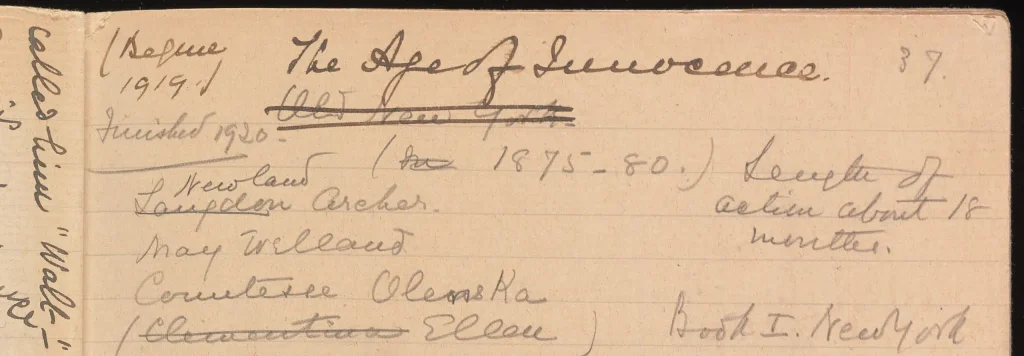 (Begun
1919.)
The Age of Innocence.
37.
Old New York.
Finished 1920.
(In 1875-80.)
Length of
action about 18
months.
Newland
Langdon Archer.
May Welland
Countess Olenska
(Clementina Ellen)
Book I. New York
called him "Walt-"